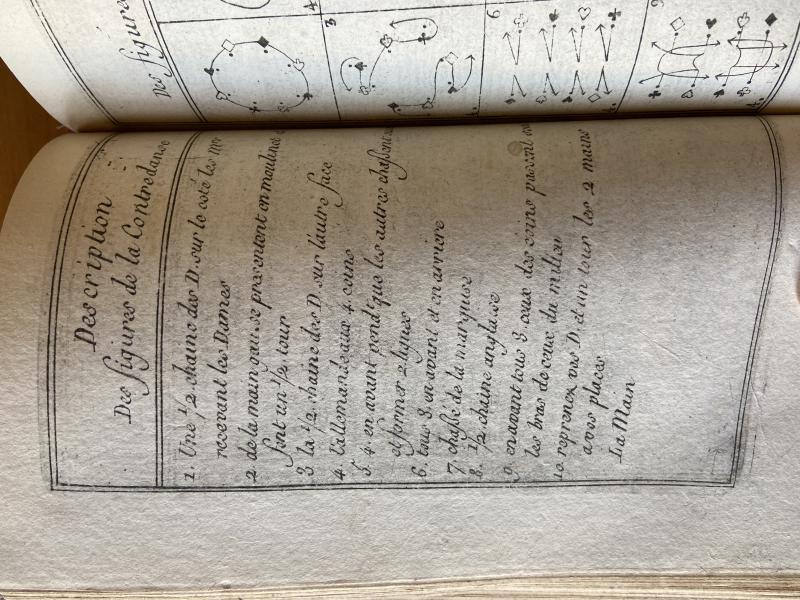 Description
Des figures de la Contredance
1. Une 1/2 chaine des D. sur le coté les
recevant les Dames
2. de la main gau. se presentent en moulinet
font un 1/2 tour
3 la 1/2 chaine des D. sur l'autre face
4. l'allemande aux 4 coins
5. 4 en avant pend! que les autres chassent
et former 2 lignes
6. tous 8. en avant et en arriere
7. chassé de la marquise
8. 1/2 chaine anglaise
9. en avant tous 8. ceux des coins passent
les bras de ceux du milieu
10. reprenez vos D. et un tour les 2 mains
a vos places
La Main
Des figure
3
4
6
9